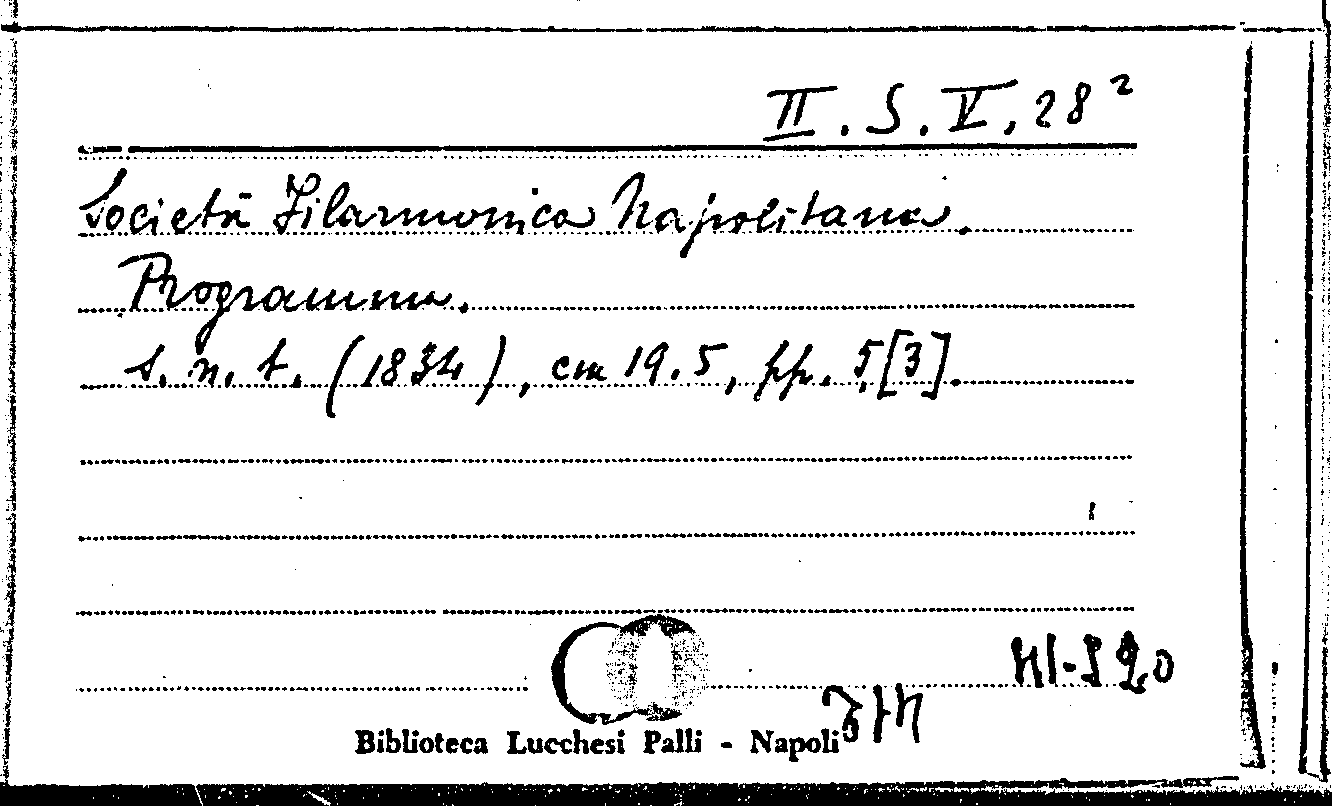 II. S. V, 28²
Società Filarmonica Napolitana.
Programma.
s. n. t. (1834), cm 19.5, pp. 5,[3].
Biblioteca Lucchesi Palli - Napoli